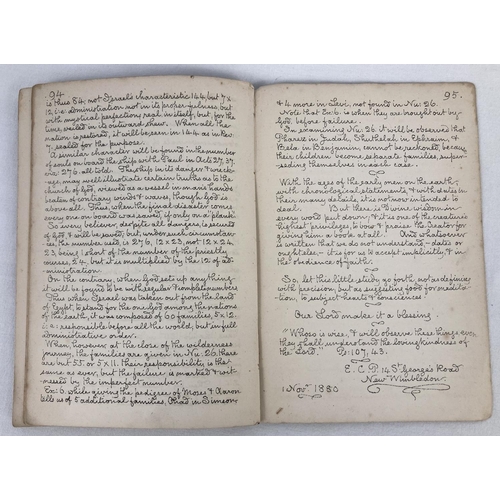 94
is thus 84; not Israel's characteristic 144, but 7 x
12, i.e. administration not in its proper fulness, but
with mystical perfections, real in itself, but, for the
time, veiled in its outward show. When all the
nation is restored, it will be seen in 144 as in Rev.
7, sealed for the purpose.
A similar character will be found in the number
of souls on board the ship with Paul in Acts 27, 37,
viz: 276, all told. This ship in its danger & wreck-
age, may well illustrate certain truths as to the
church of God, viewed as a vessel in man's hands
& tale of contrary winds & waves, though God is
above all. Thus, when the final disaster comes
every one on board was saved, if only on a plank.
So every believer, despite all dangers, is secured
of God, & will be saved, but, under such circumstan-
ces, the number used, is 276, i.e. 12 x 23, not 12 x 24,
23, being 1 short of the number of the priestly
courses, 24, but it is multiplied by the 12 of ad-
ministration.
On the contrary, when God set up anything
it will be found to be with regular & complete numbers.
Thus when Israel was taken out from the land
of Egypt, to stand for the only God among the nations
of the earth, it was composed of 60 families, 5 x 12.
i.e. responsible before all the world, but in full
administrative order.
When, however at the close of the wilderness
journey, the families are given in Nu. 26, there
are but 55 or 5 x 11. Their responsibility is the
same as ever, but the failure is marked & wit-
nessed by the imperfect number.
Ex: 6, while giving the pedigree of Moses & Aaron
tells us of 5 additional families, Ohad in Simeon
95.
& 4 more in Levi, not found in Nu: 26.
Note that Ex: 6 is when they are brought out by
God, before failure.
In examining Nu: 26 it will be observed that
Pharez in Judah, Shuthelah in Ephraim, &
Bela in Benjamin, cannot be reckoned, because
their children become separate families, super-
seding themselves in each case.
With the ages of the early men on the earth,
with chronological statements, & with dates in
their many details, it is not now intended to
deal. But there is Divine wisdom in
every word put down; & it is one of the creature's
highest privileges, to bow & praise the Creator for
giving him a book at all. And whatsoever
is written that we do not understand - dates or
aught else - it is for us to accept implicitly, & in
the obedience of faith.
So, let this little study go forth, not as defining
with precision, but as suggesting food for medita-
tion, to subject hearts & consciences.
Our Lord make it a blessing.
"Whoso is wise, & will observe these things, even
they shall understand the lovingkindness of
the Lord." Ps: 107, 43.
E. C. P. 14 St George's Road
New Wimbledon.
1 Nov: 1880